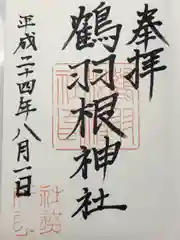 奉拝
鶴羽根神社
平成二十四年八月一日
社務